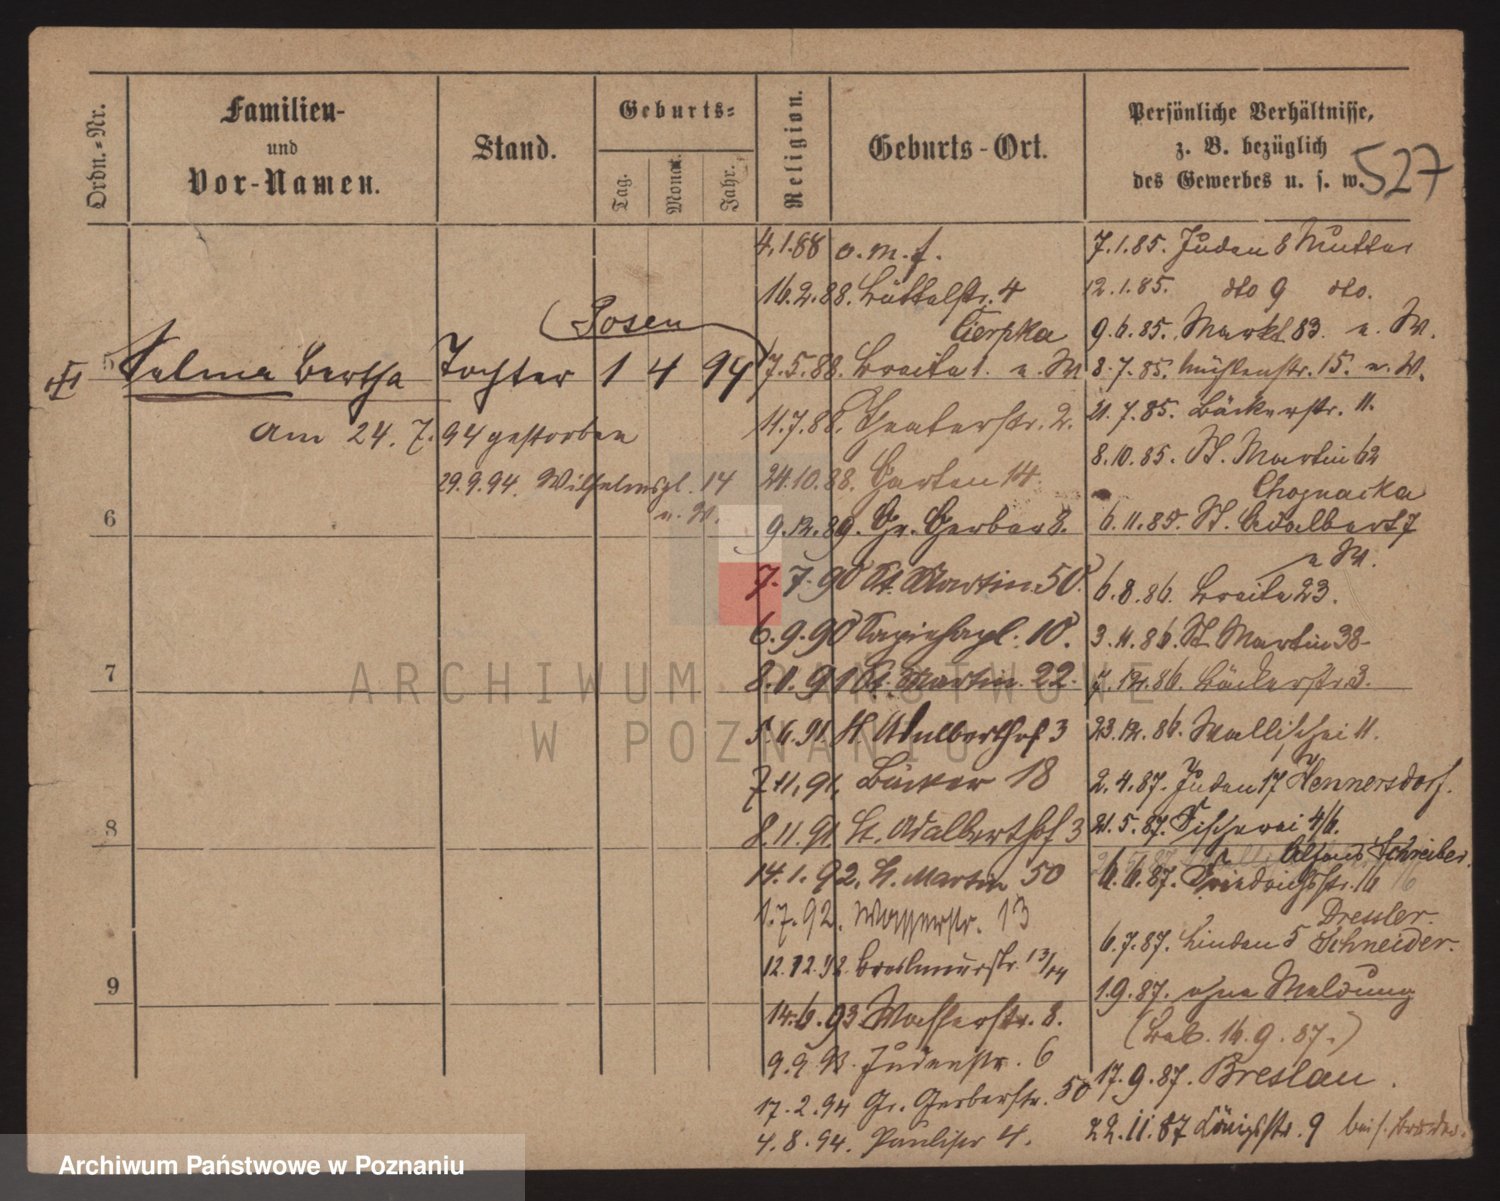 Ordn.-Nr.
Familien-
und
Vor-Namen.
Stand.
Geburts-
Tag.
Monat.
Jahr.
Religion.
Geburts-Ort.
Persönliche Verhältnisse,
z. B. bezüglich
des Gewerbes u. s. w.
527
(Posen)
5 Selma Bertha Tochter 1 4 94
am 24. 7. 94 gestorben
29.9.94. Wilhelmspl. 14
u. W.
6
7
8
9
4.1.88 o. m. f.
16.2.88. Büttelstr. 4
Cierpka
7.5.88. Breite 1. u. W
11.7.88. Theaterstr. 2.
24.10.88. Garten 14
9.12.89. Gr. Gerber 8.
7.7.90 St. Martin 50.
6.9.90 Sapiehapl. 10.
8.1.91 St. Martin 22.
5.6.91. St. Adalberthof 3
7.11.91. Bäcker 18
8.11.91. St. Adalberthof 3
14.1.92. St. Martin 50
1.7.92. Wasserstr. 13
12.12.92. Breslauerstr. 13/14
14.6.93 Wasserstr. 8.
9.9.93. Judenstr. 6
17.2.94 Gr. Gerberstr. 50
4.8.94. Paulistr 4.
7.1.85. Juden 8 Mutter
12.1.85. dto 9 dto.
9.6.85. Markt 83 u. W.
8.7.85. Mühlenstr. 15. u. W.
21.7.85. Bäckerstr. 11.
8.10.85. St. Martin 62
Choynacka
6.11.85. St. Adalbert 7
u W.
6.8.86. Breite 23.
3.11.86. St. Martin 38
7.12.86. Bäckerstr. 3.
23.12.86. Wallischei 11.
2.4.87. Juden 17 Hennersdorf.
21.5.87. Fischerei 4/6.
Schreiber.
6.6.87. Friedrichstr. 16
Dressler.
6.7.87. Linden 5 Schneider.
1.9.87. ohne Meldung
(Bab. 16.9.87.)
17.9.87. Breslau.
22.11.87 Königsstr. 9 bei s. Bruder.
ARCHIWUM PAŃSTWOWE
W POZNANIU
Archiwum Państwowe w Poznaniu